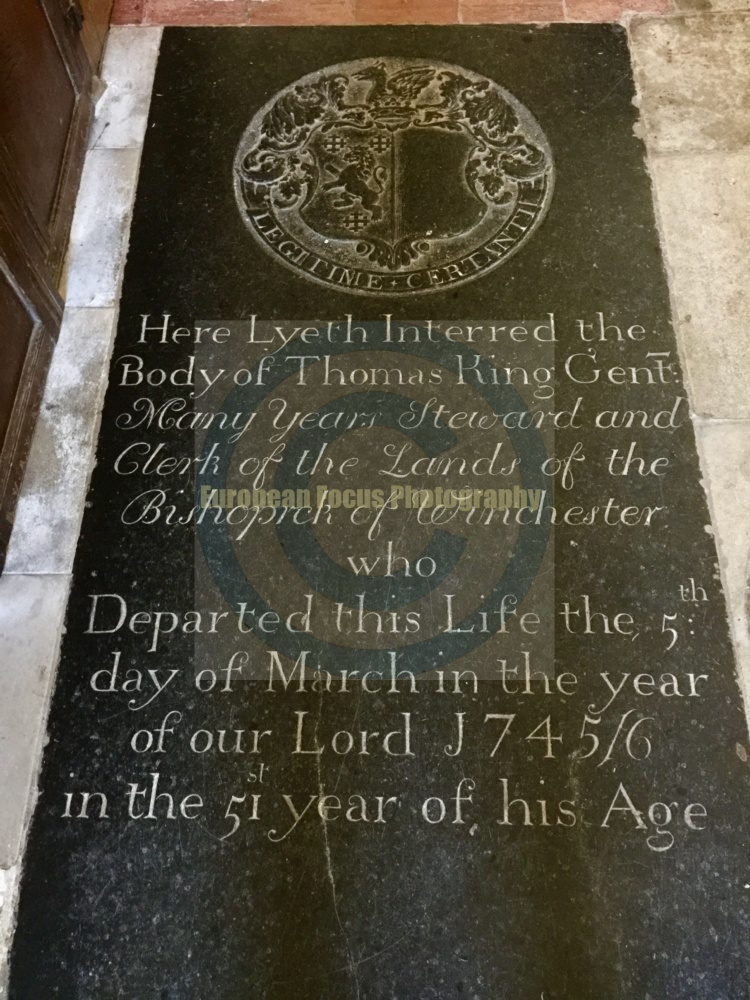 LEGITIME + CERTANTI
Here Lyeth Interred the
Body of Thomas Ring Gent:
Many Years Steward and
Clerk of the Lands of the
Bishoprck of Winchester
who
Departed this Life the 5:th
day of March in the year
of our Lord J745/6
in the 51st year of his Age
European Focus Photography